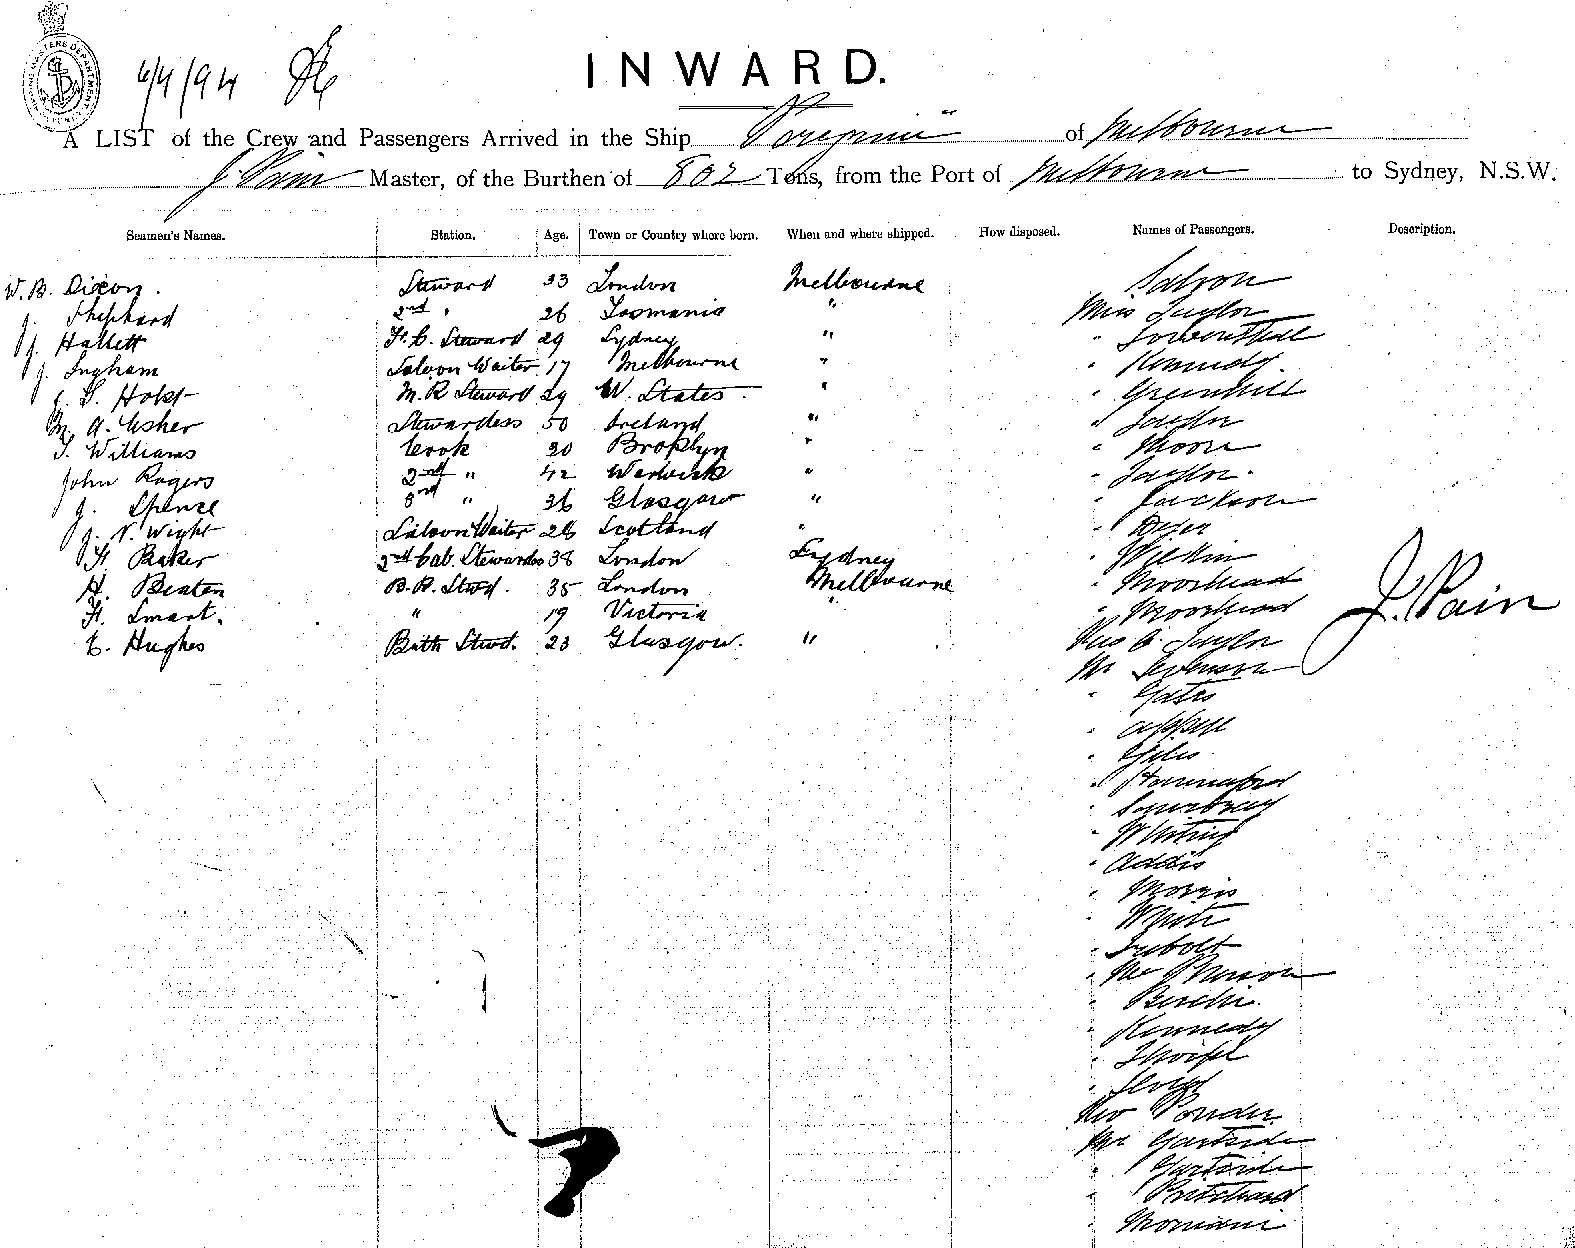 6/4/94
INWARD.
A LIST of the Crew and Passengers Arrived in the Ship of Melbourne
J. Pain Master, of the Burthen of 802 Tons, from the Port of Melbourne to Sydney, N.S.W.
Seamen's Names. Station. Age. Town or Country where born. When and where shipped. How disposed. Names of Passengers. Description.
W. B. Dixon. Steward 33 London Melbourne Saloon
J. Shephard 2nd " 26 Tasmania " Miss Taylor
J. Hallett F. C. Steward 29 Sydney " "
J. Ingham Saloon Waiter 17 Melbourne " " Kennedy
J. S. Holst M. R Steward 29 W. States " " Greenhill
M. A. Usher Stewardess 50 Ireland " "
T. Williams Cook 30 Brooklyn " " Moore
John Rogers 2nd " 42 Warwick " " Taylor
J. Spense 3rd " 36 Glasgow " " Jackson
J. V. Wight Saloon Waiter 26 Scotland " "
H. Baker 2nd Cab. Stewardss 38 London Sydney " Wilkin
H. Beaten B. R. Stwd. 35 London Melbourne " Moorhead
H. Smart. " 19 Victoria " " Moorhead
E. Hughes Bath Stwd. 23 Glasgow. " Miss A. Taylor
J. Pain
Mr
" Gates
" Appell
" Giles
" Hannaford
"
" Whiting
" Addis
" Morris
" White
"
"
"
" Kennedy
"
" Lloyd
Rev Ponder
Mr Gartside
" Gartside
" Pritchard
"